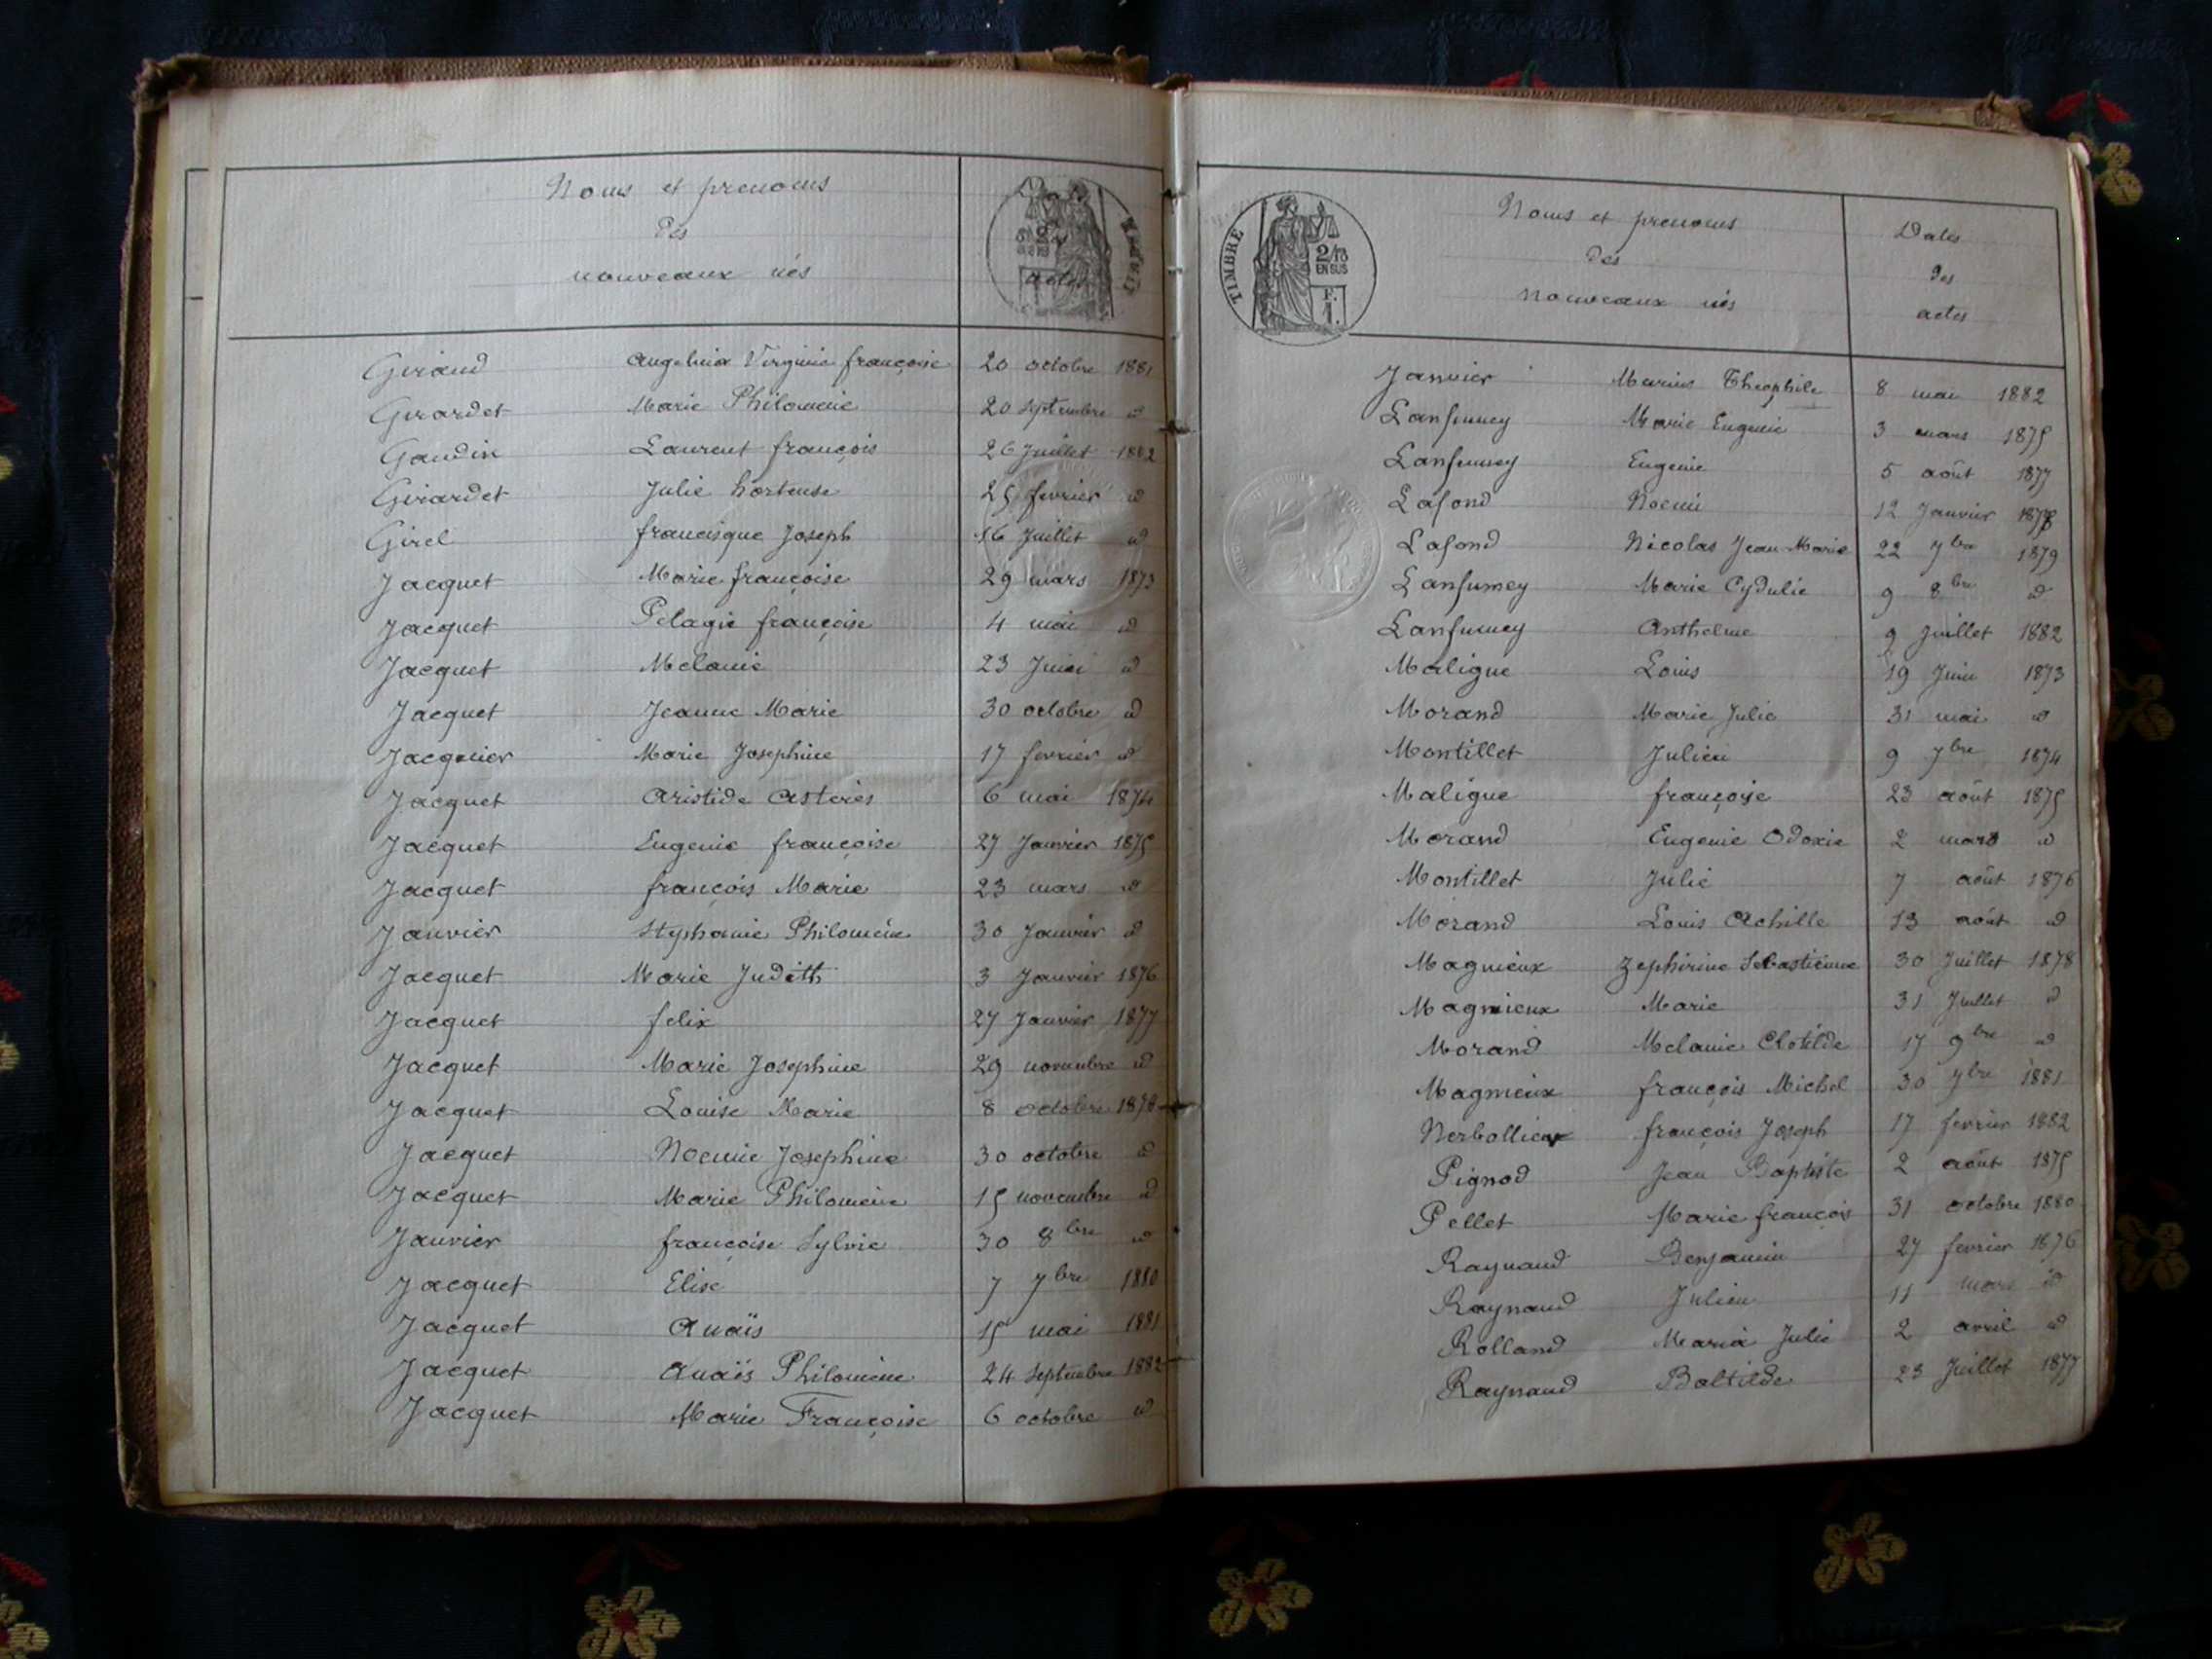 Noms et prenoms
des
nouveaux nés
actes
Giraud Angelina Virginie françoise 20 octobre 1881
Girardet Marie Philomenie 20 septembre id
Gaudin Laurent françois 26 Juillet 1882
Girardet Julie hortense 25 fevrier id
Girel francisque Joseph 16 Juillet id
Jacquet Marie françoise 29 mars 1873
Jacquet Pelagie françoise 4 mai id
Jacquet Melanie 23 Juin id
Jacquet Jeanne Marie 30 octobre id
Jacquier Marie Josephine 17 fevrier id
Jacquet Aristide Asteries 6 mai 1874
Jacquet Eugenie françoise 27 Janvier 1875
Jacquet françois Marie 23 mars id
Janvier Stephanie Philomène 30 Janvier id
Jacquet Marie Judith 3 Janvier 1876
Jacquet felix 27 Janvier 1877
Jacquet Marie Josephine 29 novembre id
Jacquet Louise Marie 8 octobre 1878
Jacquet Noemie Josephine 30 octobre id
Jacquet Marie Philomène 15 novembre id
Janvier françoise Sylvie 30 8bre id
Jacquet Elise 7 7bre 1880
Jacquet Anaïs 15 mai 1881
Jacquet Anaïs Philomène 24 septembre 1882
Jacquet Marie Françoise 6 octobre id
TIMBRE
2/10
EN SUS
F.
1.
Noms et prenoms
des
nouveaux nés
Dates
des
actes
Janvier Marius Theophile 8 mai 1882
Lanfumey Marie Eugenie 3 mars 1875
Lanfumey Eugenie 5 août 1877
Lafond Noemi 12 Janvier 1878
Lafond Nicolas Jean-Marie 22 7bre 1879
Lanfumey Marie Cydulie 9 8bre id
Lanfumey Anthelme 9 Juillet 1882
Maligue Louis 19 Juin 1873
Morand Marie Julie 31 mai id
Montillet Julien 9 7bre 1874
Maligue françoise 23 août 1875
Morand Eugenie Odoxie 2 mars id
Montillet Julie 7 août 1876
Morand Louis Achille 13 août id
Magnieux Zephirine Sebastienne 30 Juillet 1878
Magnieux Marie 31 Juillet id
Morand Melanie Clotilde 17 9bre id
Magnieux françois Michel 30 7bre 1881
Nerbollieux françois Joseph 17 fevrier 1882
Pignod Jean Baptiste 2 août 1875
Pellet Marie françois 31 octobre 1880
Raynaud Benjamin 27 fevrier 1876
Raynaud Julien 11 mars id
Rolland Maria Julie 2 avril id
Raynaud Baltilde 23 Juillet 1877